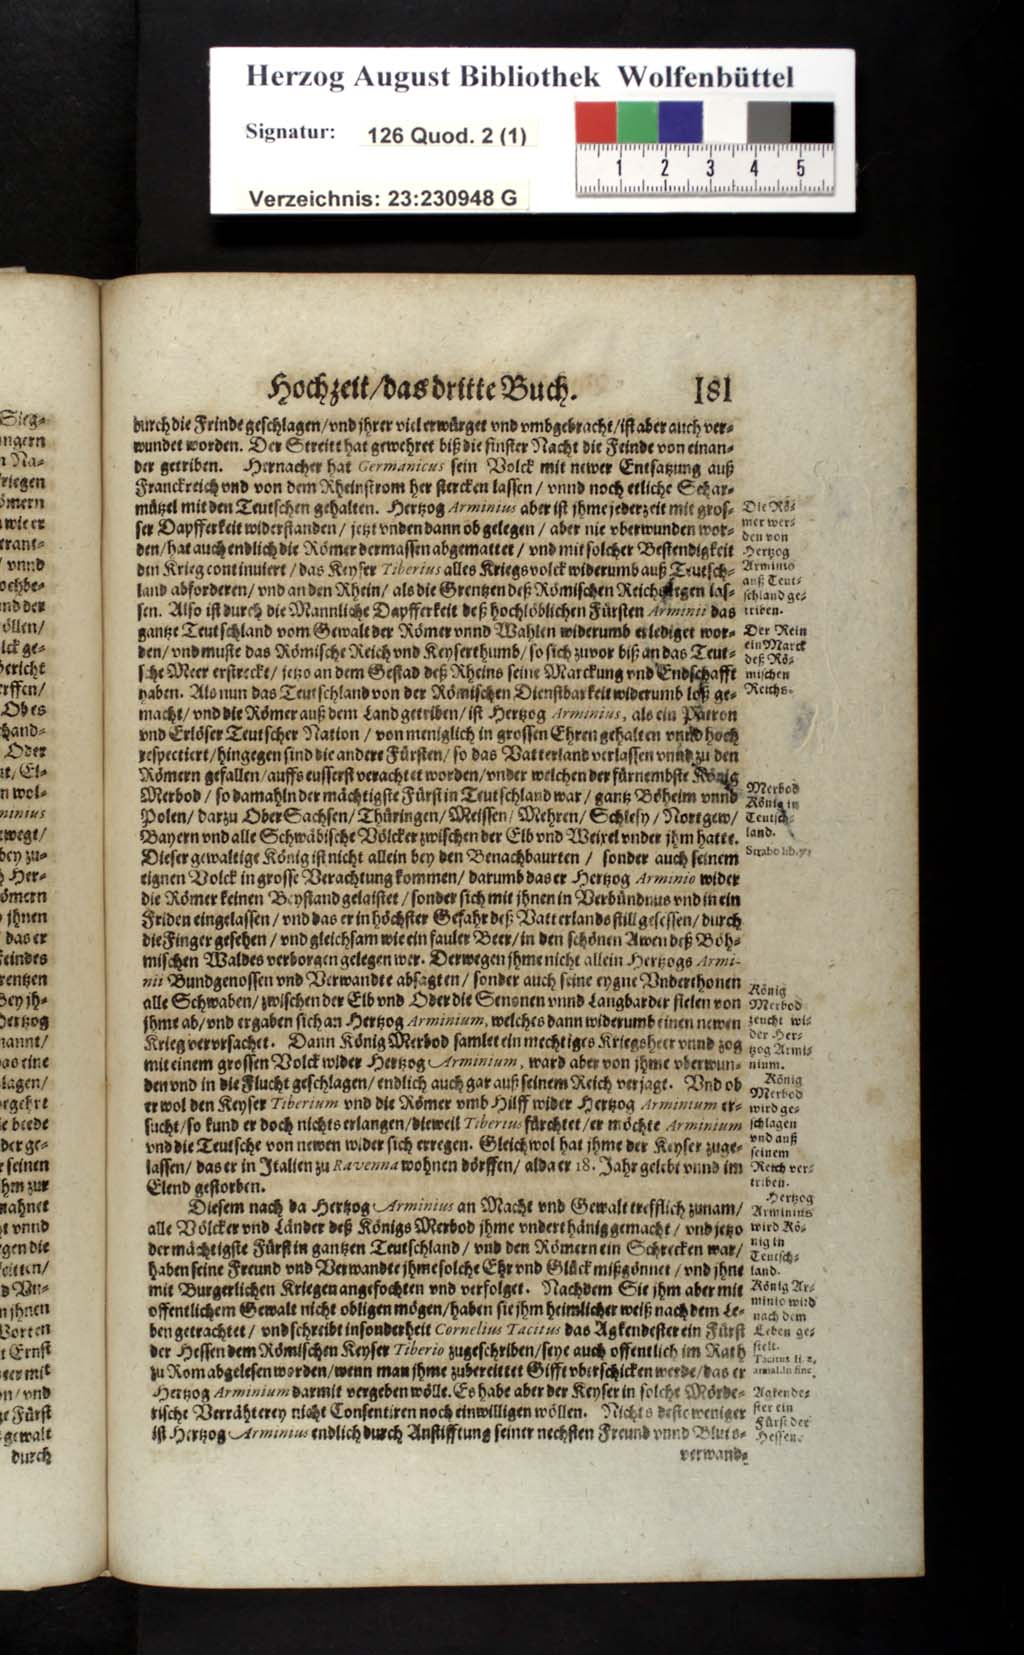 Herzog August Bibliothek Wolfenbüttel
Signatur: 126 Quod. 2 (1)
1 2 3 4 5
Verzeichnis: 23:230948 G
Hochzeit/das dritte Buch. 181
durch die Frinde geschlagen/vnd jhrer viel erwürget vnd vmbgebracht/ist aber auch ver-
wundet worden. Der Streitt hat gewehret biß die finster Nacht die Feinde von einan-
der getriben. Hernacher hat Germanicus sein Volck mit newer Entsatzung auß
Franckreich vnd von dem Rheinstrom her stercken lassen / vnnd noch etliche Schar-
mützel mit den Teutschen gehalten. Hertzog Arminius aber ist jhme jederzeit mit gros-
ser Dapfferkeit widerstanden / jetzt vnden dann ob gelegen / aber nie vberwunden wor-
den/hat auch endlich die Römer dermassen abgemattet / vnd mit solcher Bestendigkeit
den Krieg continuiert / das Keyser Tiberius alles Kriegsvolck widerumb auß Teutsch-
land abforderen/ vnd an den Rhein/ als die Grentzen deß Römischen Reichs legen las-
sen. Also ist durch die Mannliche Dapfferkeit deß hochlöblichen Fürsten Arminii das
gantze Teutschland vom Gewalt der Römer vnnd Wahlen widerumb erlediget wor-
den/ vnd muste das Römische Reich vnd Keyserthumb/ so sich zuvor biß an das Teut-
sche Meer erstreckt/ jetzo an dem Gestad deß Rheins seine Marckung vnd Endschafft
haben. Als nun das Teutschland von der Römischen Dienstbarkeit widerumb loß ge-
macht/ vnd die Römer auß dem Land getriben/ ist Hertzog Arminius, als ein Patron
vnd Erlöser Teutscher Nation / von meniglich in grossen Ehren gehalten vnnd hoch
respectiert/hingegen sind die andere Fürsten/ so das Vatterland verlassen vnnd zu den
Römern gefallen/auffs eusserst verachtet worden/vnder welchen der fürnembste König
Merbod / so damahln der mächtigste Fürst in Teutschland war / gantz Böheim vnnd
Polen/ darzu Ober Sachsen/ Thüringen/ Meissen/ Mehren/ Schlesy / Nortgew/
Bayern vnd alle Schwäbische Völcker zwischen der Elb vnd Weixel vnder jhm hatte.
Dieser gewaltige König ist nicht allein bey den Benachbaurten / sonder auch seinem
eignen Volck in grosse Verachtung kommen/ darumb das er Hertzog Arminio wider
die Römer keinen Beystand gelaistet / sonder sich mit jhnen in Verbündnus vnd in ein
Friden eingelassen / vnd das er in höchster Gefahr deß Vatterlands still gesessen/ durch
die Finger gesehen / vnd gleichsam wie ein fauler Beer/ in den schönen Awen deß Böh-
mischen Waldes verborgen gelegen wer. Derwegen jhme nicht allein Hertzogs Armi-
nii Bundgenossen vnd Verwandte absagten / sonder auch seine eygne Vnderthonen
alle Schwaben/ zwischen der Elb vnd Oder die Senonen vnnd Langbarder fielen von
jhme ab/ vnd ergaben sich an Hertzog Arminium, welches dann widerumb einen newen
Krieg vervrsachet. Dann König Merbod samlet ein mechtiges Kriegsheer vnnd zog
mit einem grossen Volck wider Hertzog Arminium, ward aber von jhme vberwun-
den vnd in die Flucht geschlagen/ endlich auch gar auß seinem Reich verjagt. Vnd ob
er wol den Keyser Tiberium vnd die Römer vmb Hilff wider Hertzog Arminium er-
sucht/ so kund er doch nichts erlangen/ dieweil Tiberius fürchtet/ er möchte Arminium
vnd die Teutsche von newen wider sich erregen. Gleichwol hat jhme der Keyser zuge-
lassen/ das er in Italien zu Ravenna wohnen dörffen/ alda er 18. Jahr gelebt vnnd im
Elend gestorben.
Diesem nach da Hertzog Arminius an Macht vnd Gewalt trefflich zunam/
alle Völcker vnd Länder deß Königs Merbod jhme vnderthänig gemacht / vnd jetzo
der mächtigste Fürst in gantzen Teutschland / vnd den Römern ein Schrecken war/
haben seine Freund vnd Verwandte jhme solche Ehr vnd Glück mißgönnet / vnd jhne
mit Burgerlichen Kriegen angefochten vnd verfolget. Nachdem Sie jhm aber mit
offentlichem Gewalt nicht obligen mögen/ haben sie jhm heimlicher weiß nach dem Le-
ben getrachtet / vnd schreibt insonderheit Cornelius Tacitus das Agkendester ein Fürst
der Hessen dem Römischen Keyser Tiberio zugeschriben/ seye auch offentlich im Rath
zu Rom abgelesen worden/ wenn man jhme zubereittet Gifft vberschicken werde/ das er
Hertzog Arminium darmit vergeben wölle. Es habe aber der Keyser in solche Mörde-
rische Verrähterey nicht Consentiren noch einwilligen wöllen. Nichts desteweniger
ist Hertzog Arminius endlich durch Anstifftung seiner nechsten Freund vnnd Bluts-
verwand-
Die Rö-
mer wer-
den von
Hertzog
Arminio
auß Teut-
schland ge-
triben.
Der Rein
ein Marck
deß Rö-
mischen
Reichs.
Merbod
König in
Teutsch-
land.
Strabo lib. 7.
König
Merbod
zeucht wi-
der Her-
tzog Armi-
nium.
König
Merbod
wird ge-
schlagen
vnd auß
seinem
Reich ver-
triben.
Hertzog
Arminius
wird Kö-
nig in
Teutsch-
land.
König Ar-
minio wird
nach dem
Leben ge-
stelt.
Tacitus li. 2.
annal. in fine.
Agkende-
ster ein
Fürst der
Hessen.